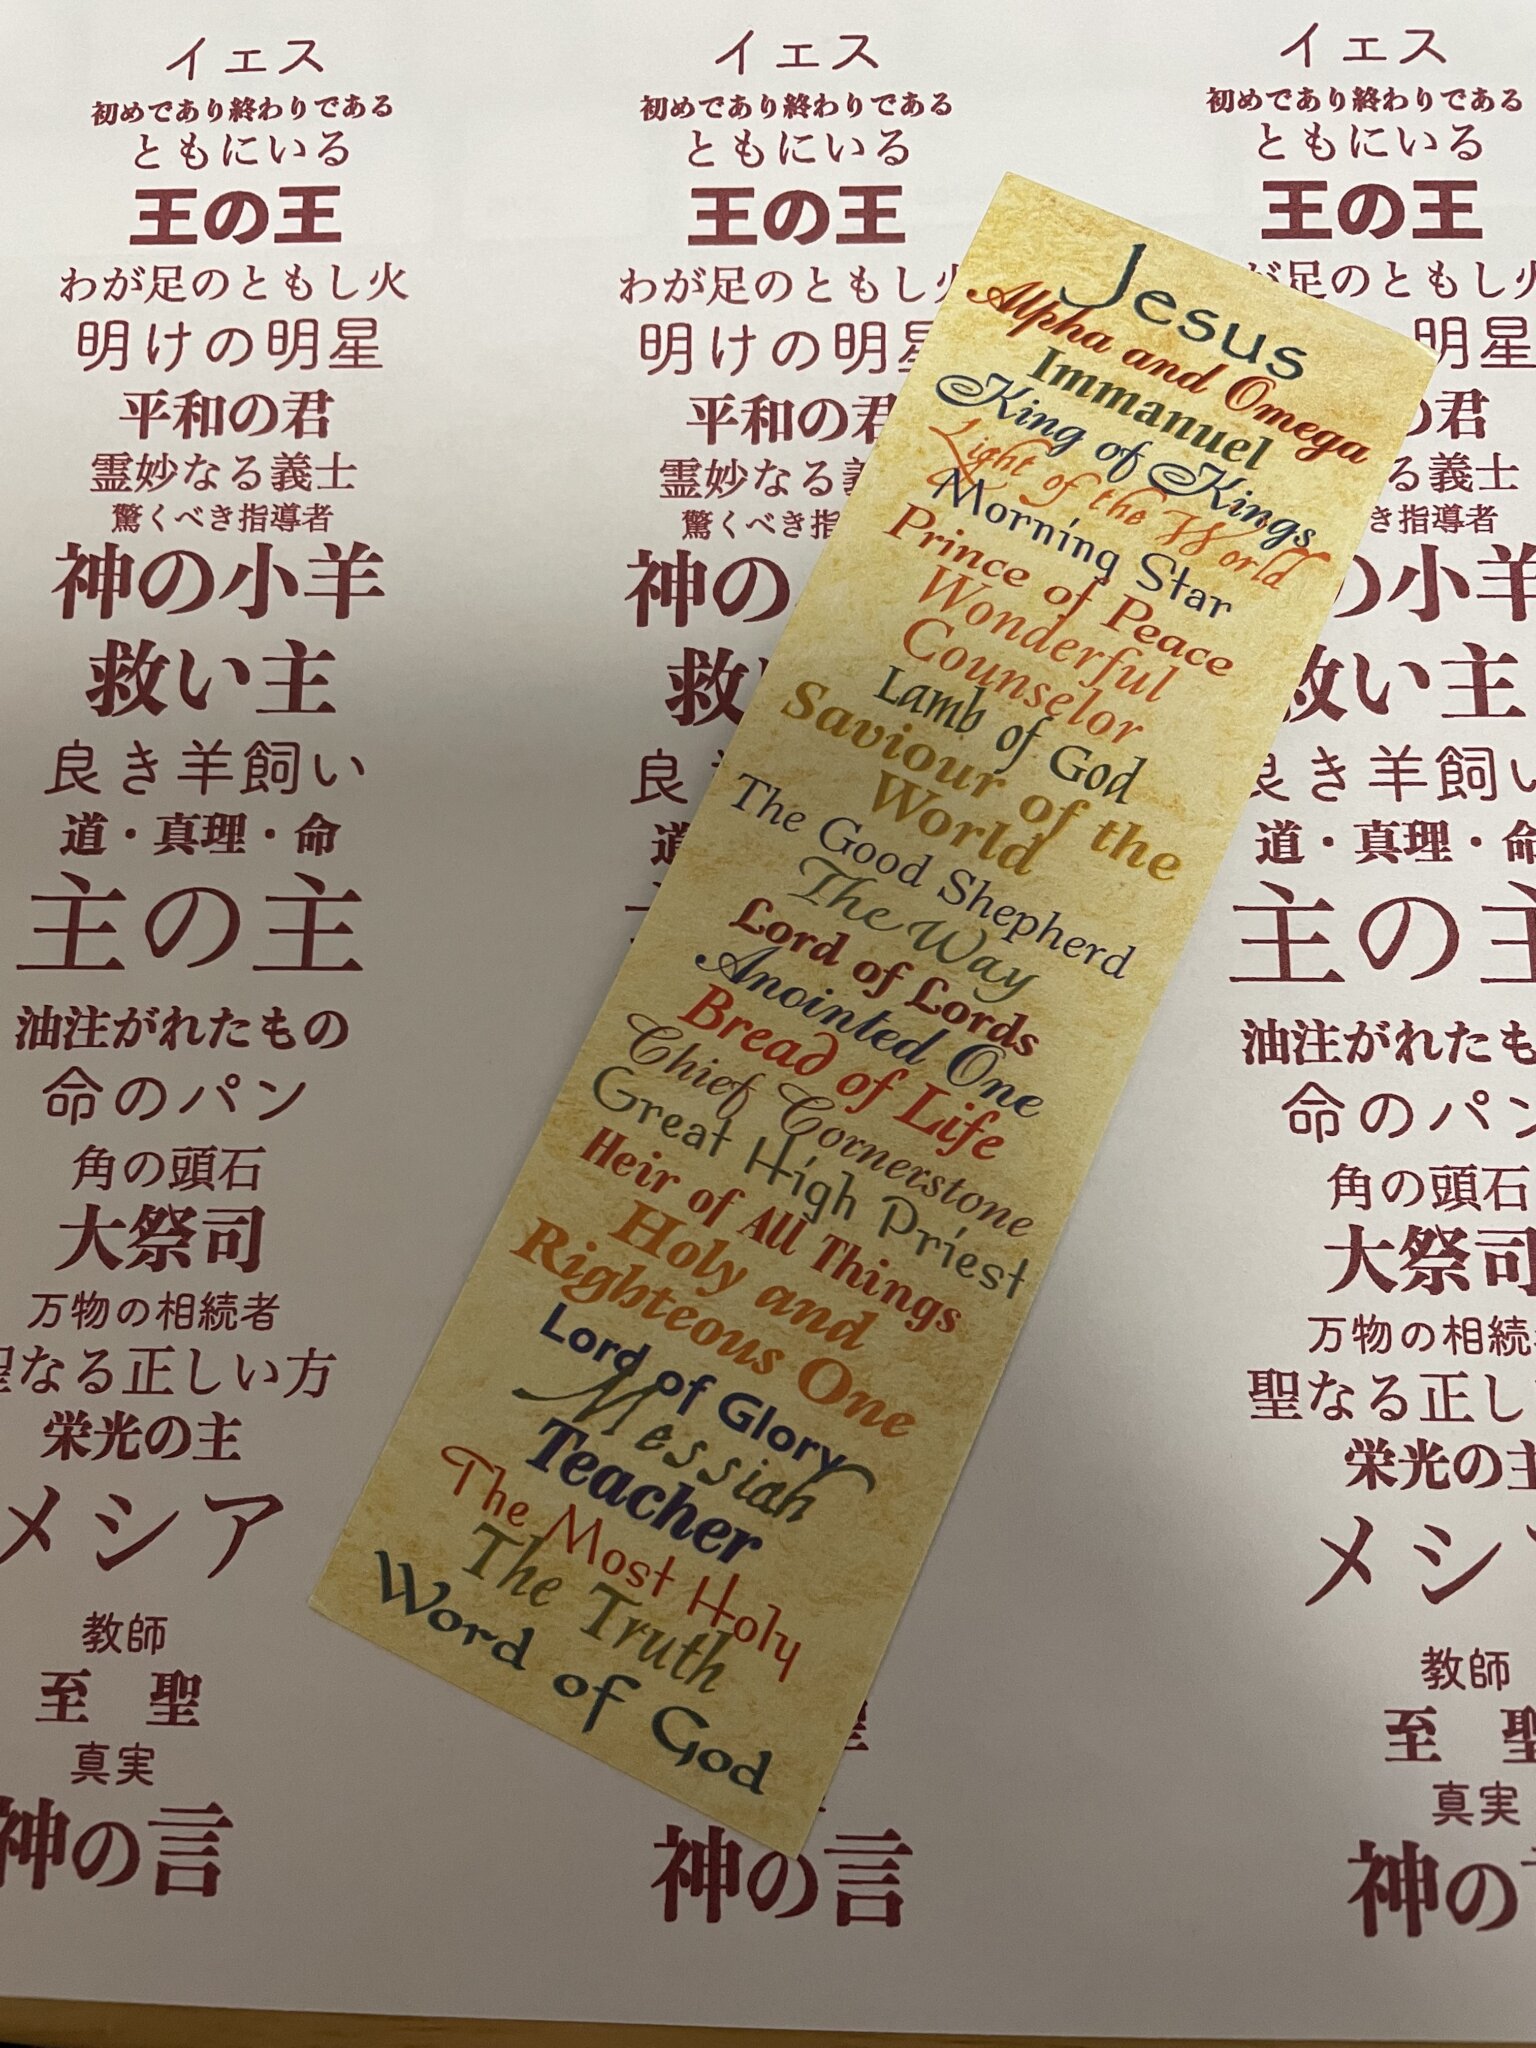 イエス
初めであり終わりである
ともにいる
王の王
わが足のともし火
明けの明星
平和の君
霊妙なる義士
驚くべき指導者
神の小羊
救い主
良き羊飼い
道・真理・命
主の主
油注がれたもの
命のパン
角の頭石
大祭司
万物の相続者
聖なる正しい方
栄光の主
メシア
教師
至 聖
真実
神の言
イエス
初めであり終わりである
ともにいる
王の王
わが足のともし
明けの明星
平和の君
霊妙なる義
驚くべき指
神の
救い
良き
道
聖
神の言
Jesus
Alpha and Omega
Immanuel
King of Kings
Light of the World
Morning Star
Prince of Peace
Wonderful
Counselor
Lamb of God
Saviour of the
World
The Good Shepherd
The Way
Lord of Lords
Anointed One
Bread of Life
Chief Cornerstone
Great High Priest
Heir of All Things
Holy and
Righteous One
Lord of Glory
Messiah
Teacher
The Most Holy
The Truth
Word of God
イエス
初めであり終わりである
ともにいる
王の王
が足のともし火
明星
の君
る義士
き指導者
の小羊
救い主
良き羊飼い
道・真理・命
主の主
油注がれたも
命のパン
角の頭石
大祭司
万物の相続者
聖なる正し
栄光の主
メシ
教師
至 聖
真実
神の言